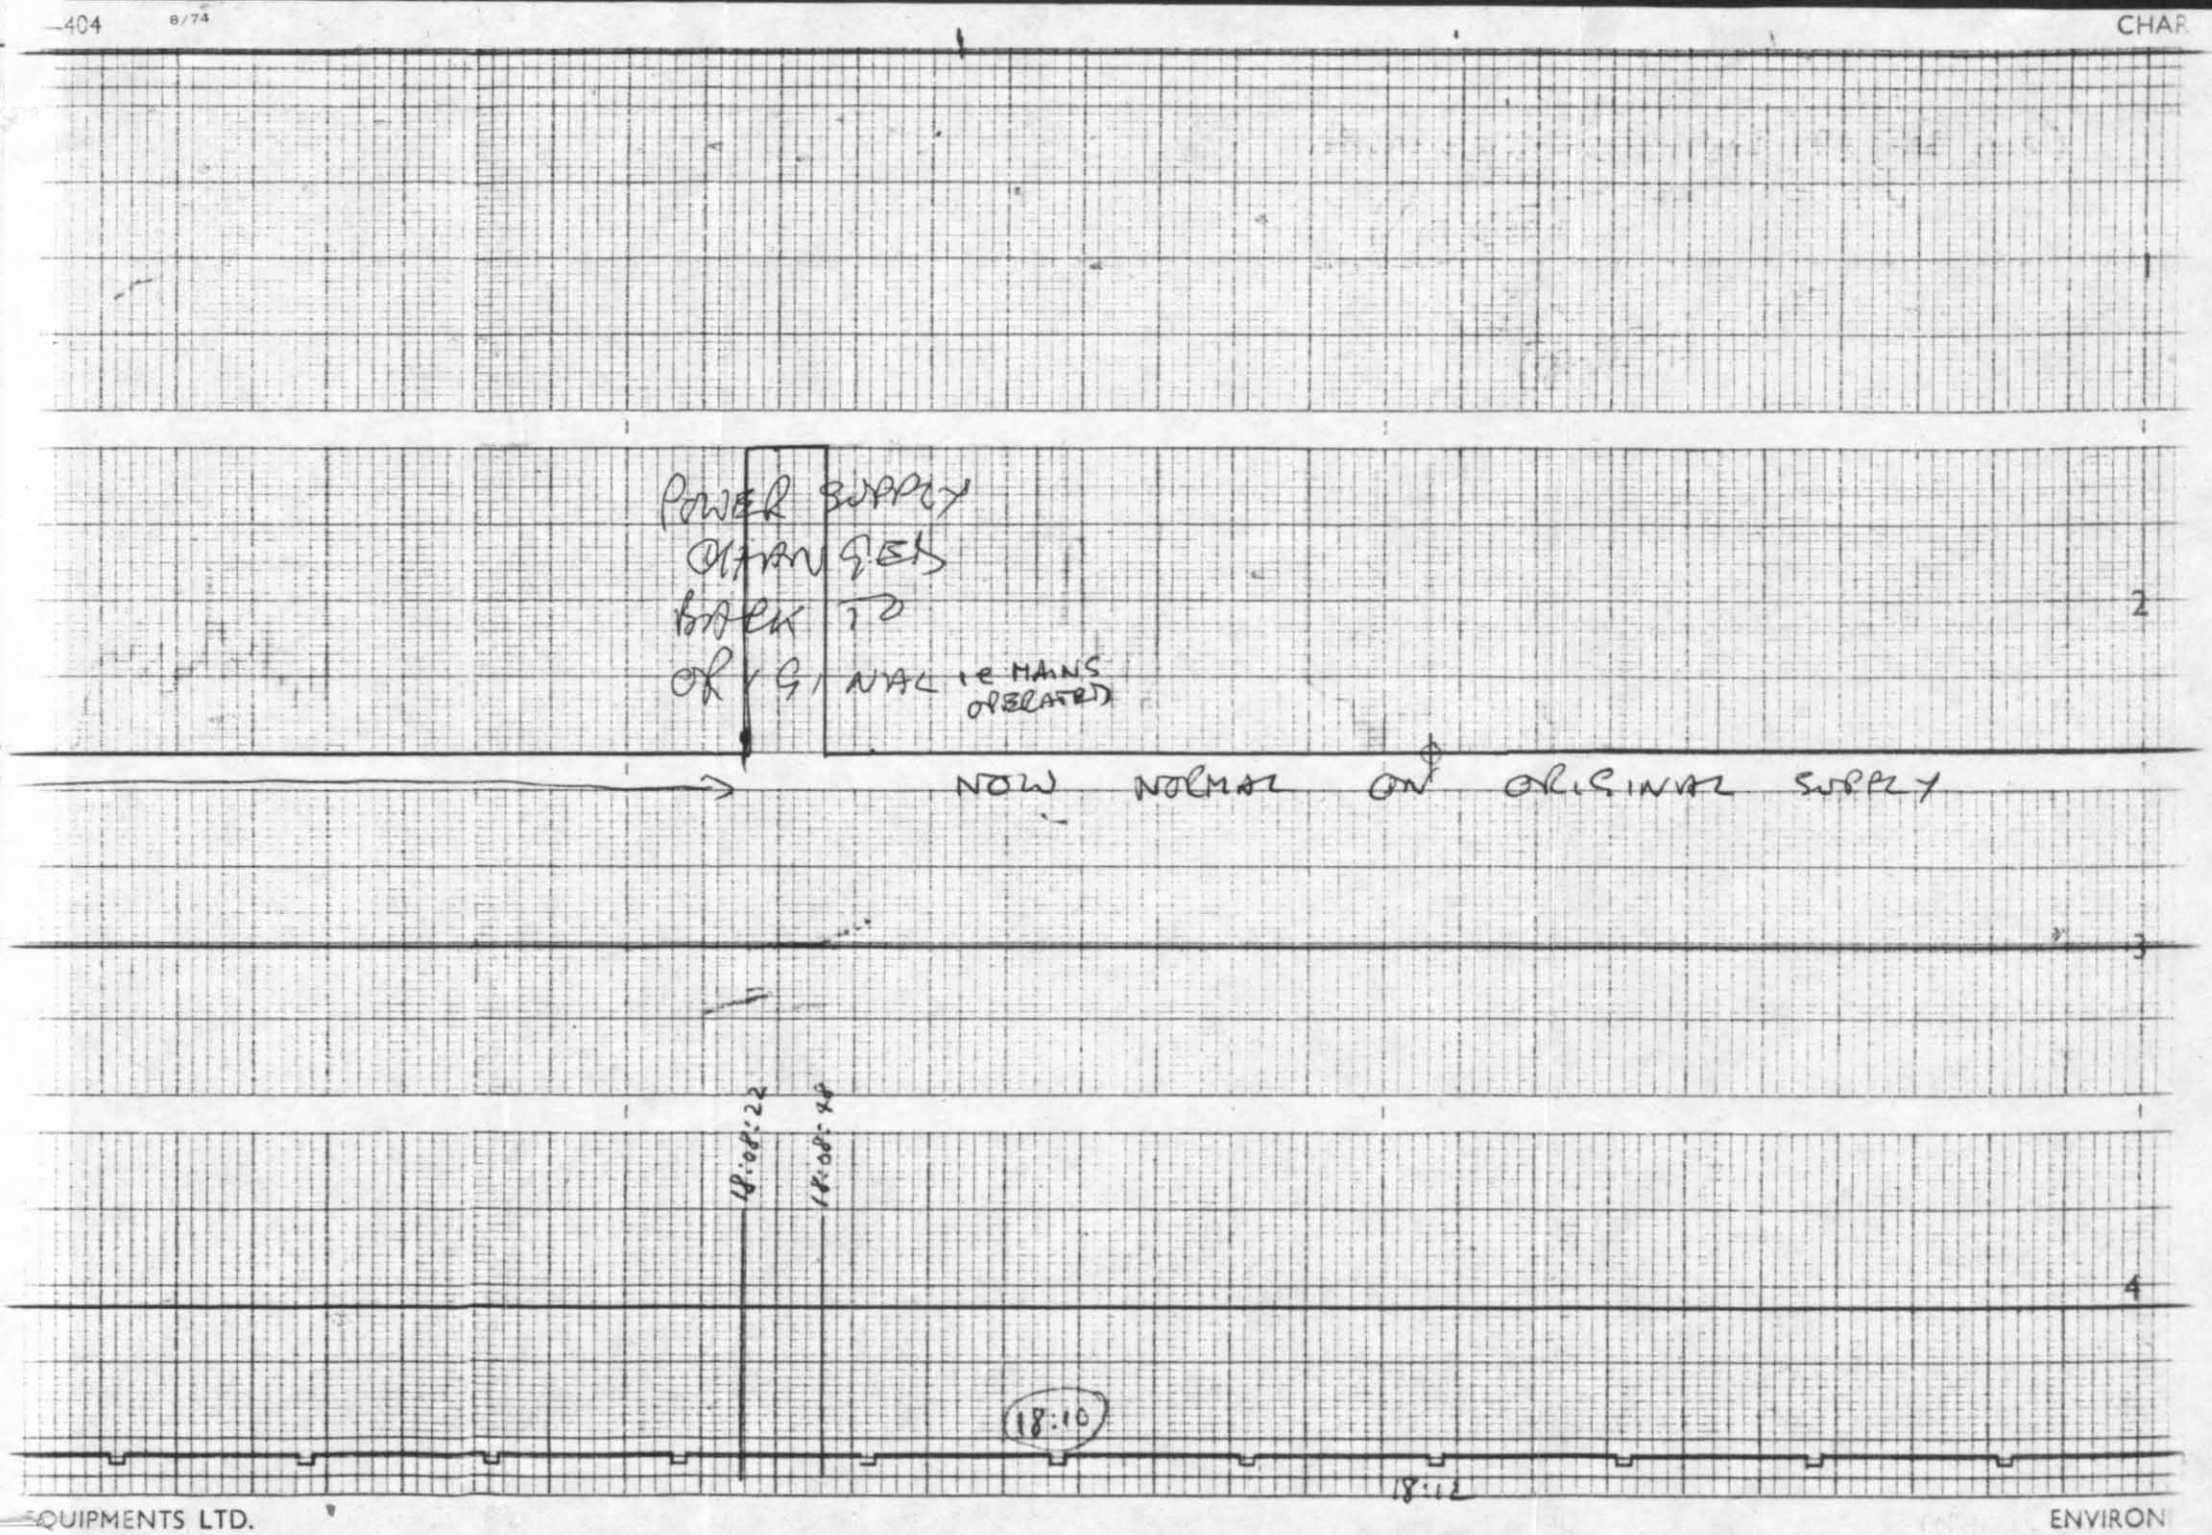 -404 8/74 CHAR
1
POWER SUPPLY
CHANGED
BACK TO
ORIGINAL ie MAINS
OPERATED
2
NOW NORMAL ON ORIGINAL SUPPLY
3
18:08:22
18:08:48
4
18:10
18:12
EQUIPMENTS LTD. ENVIRON